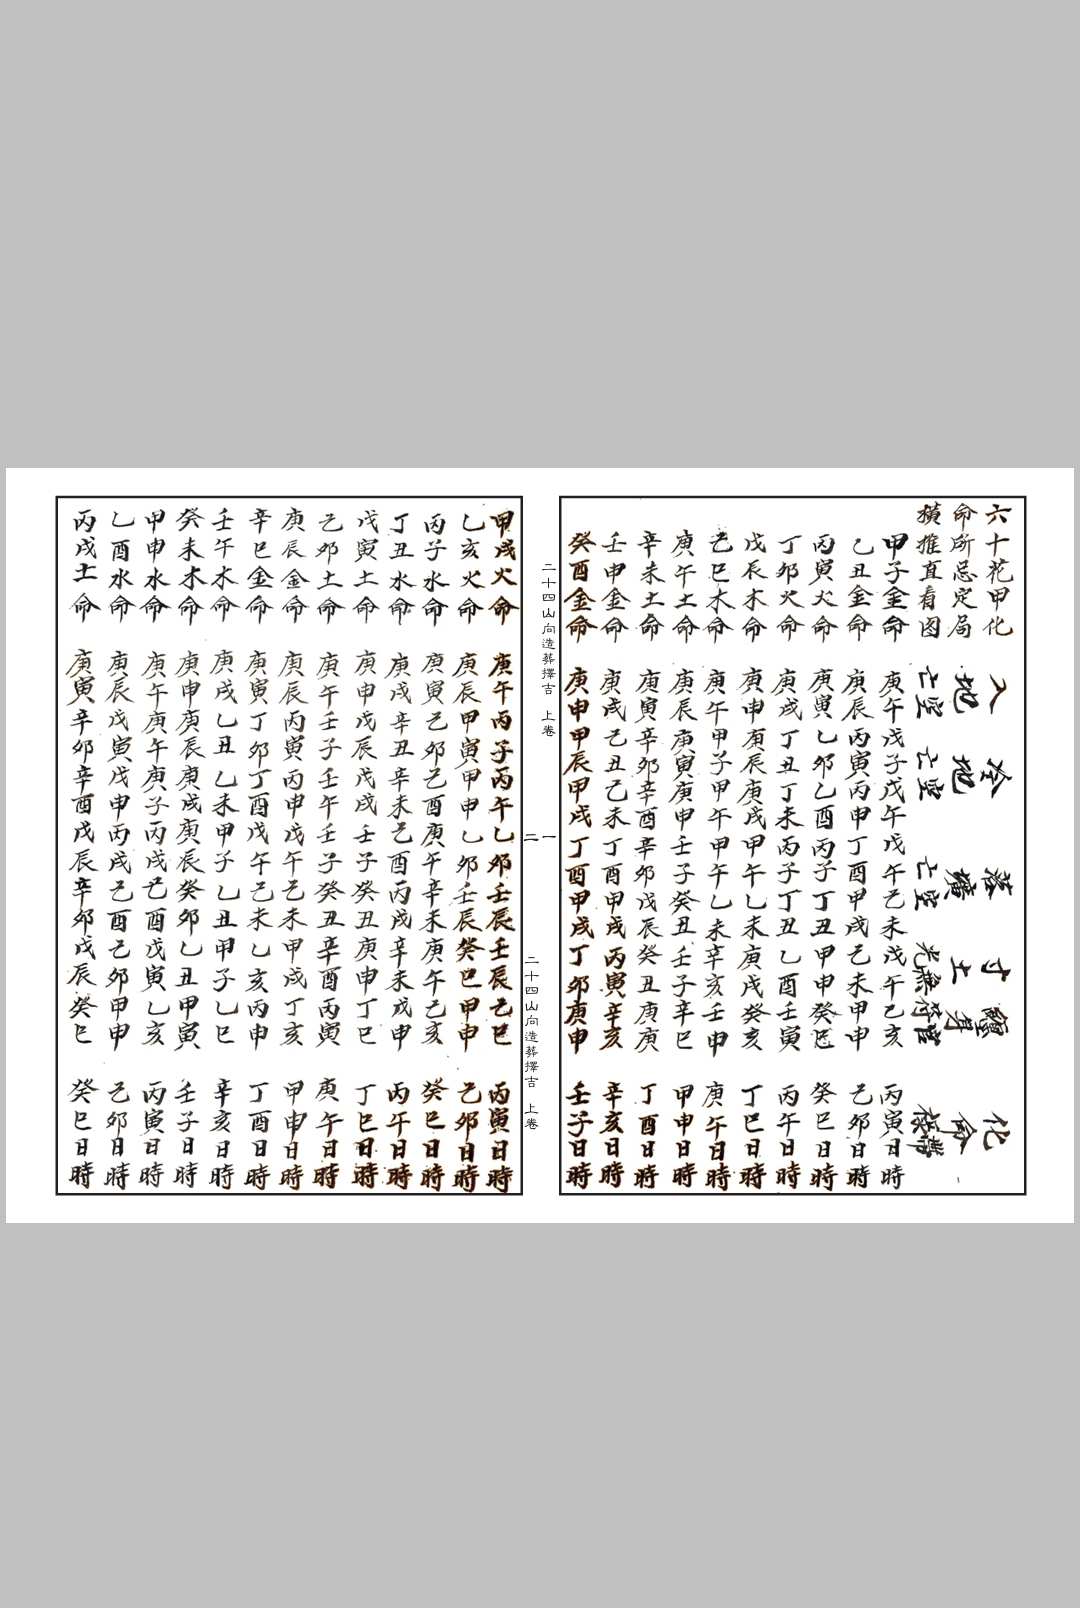 六十花甲化
命所忌定局
橫推直看图
入地亡堂
冷地亡空
甲子金命 庚午戊子戊午戊午己未戊午己亥 丙寅日時
乙丑金命 庚辰丙寅丙申丁酉甲戌己未甲申 己卯日時
丙寅火命 庚寅乙卯乙酉丙子丁丑甲申癸巳 癸巳日時
丁卯火命 庚戌丁丑丁未丙子丁丑乙酉壬寅 丙午日時
戊辰木命 庚申庚辰庚戌甲午乙未庚戌癸亥 丁巳日時
己巳木命 庚午甲子甲午甲午乙未辛亥壬申 庚午日時
庚午土命 庚辰庚寅庚申壬子癸丑壬子辛巳 甲申日時
辛未土命 庚寅辛卯辛酉辛卯戊辰癸丑庚庚 丁酉日時
壬申金命 庚戌己丑己未丁酉甲戌丙寅辛亥 辛亥日時
癸酉金命 庚申甲辰甲戌丁酉甲戌丁卯庚申 壬子日時
二十四山向造葬擇吉 上卷
一
二
二十四山向造葬擇吉 上卷
甲戌火命 庚午丙子丙午乙卯壬辰壬辰己巳 丙寅日時
乙亥火命 庚辰甲寅甲申乙卯壬辰癸巳甲申 己卯日時
丙子水命 庚寅己卯己酉庚午辛未庚午己亥 癸巳日時
丁丑水命 庚戌辛丑辛未己酉丙戌辛未戊申 丙午日時
戊寅土命 庚申戊辰戊戌壬子癸丑庚申丁巳 丁巳日時
己卯土命 庚午壬子壬午壬子癸丑辛酉丙寅 庚午日時
庚辰金命 庚辰丙寅丙申戊午己未甲戌丁亥 甲申日時
辛巳金命 庚寅丁卯丁酉戊午己未乙亥丙申 丁酉日時
壬午木命 庚戌乙丑乙未甲子乙丑甲子乙巳 辛亥日時
癸未木命 庚申庚辰庚戌庚辰癸卯乙丑甲寅 壬子日時
甲申水命 庚午庚午庚子丙戌己酉戊寅乙亥 丙寅日時
乙酉水命 庚辰戊寅戊申丙戌己酉己卯甲申 己卯日時
丙戌土命 庚寅辛卯辛酉戊辰辛卯戊辰癸巳 癸巳日時